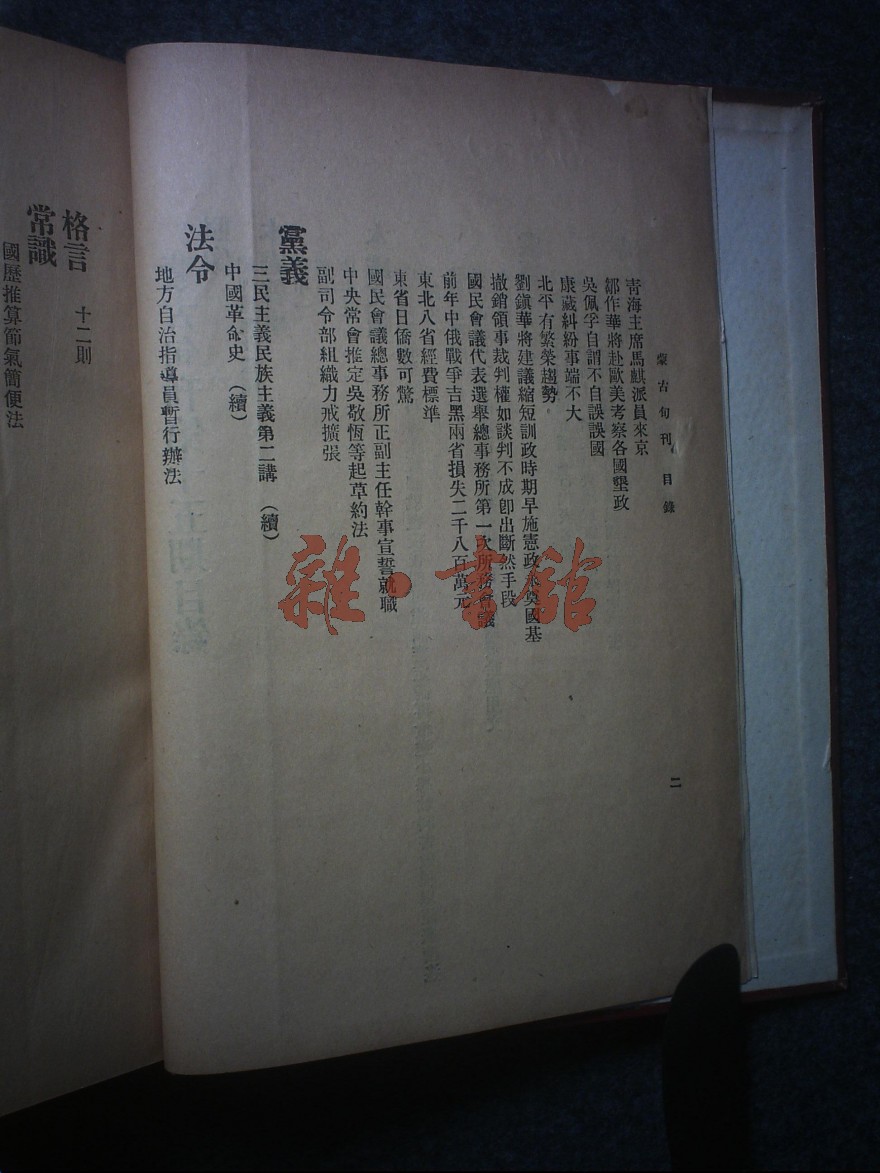 蒙古旬刊 目錄
二
青海主席馬麒派員來京
鄒作華將赴歐美考察各國墾政
吳佩孚自訓不自誤誤國
康藏糾紛事端不大
北平有繁榮趨勢
劉鎭華將建議縮短訓政時期早施憲政以奠國基
撤銷領事裁判權如談判不成卽出斷然手段
國民會議代表選舉總事務所第一次所務會議
前年中俄戰爭吉黑兩省損失二千八百萬元
東北八省經費標準
東省日僑數可驚
國民會議總事務所正副主任幹事宣誓就職
中央常會推定吳敬恆等起草約法
副司令部組織力戒擴張
黨義
三民主義民族主義第二講 (續)
中國革命史 (續)
法令
地方自治指導員暫行辦法
格言 十二則
常識
國歷推算節氣簡便法
雜·書館